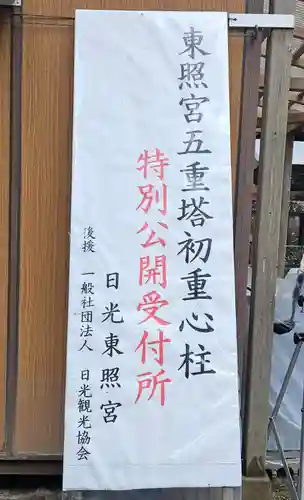 東照宮五重塔初重心柱
特別公開受付所
日光東照宮
後援 一般社団法人 日光観光協会